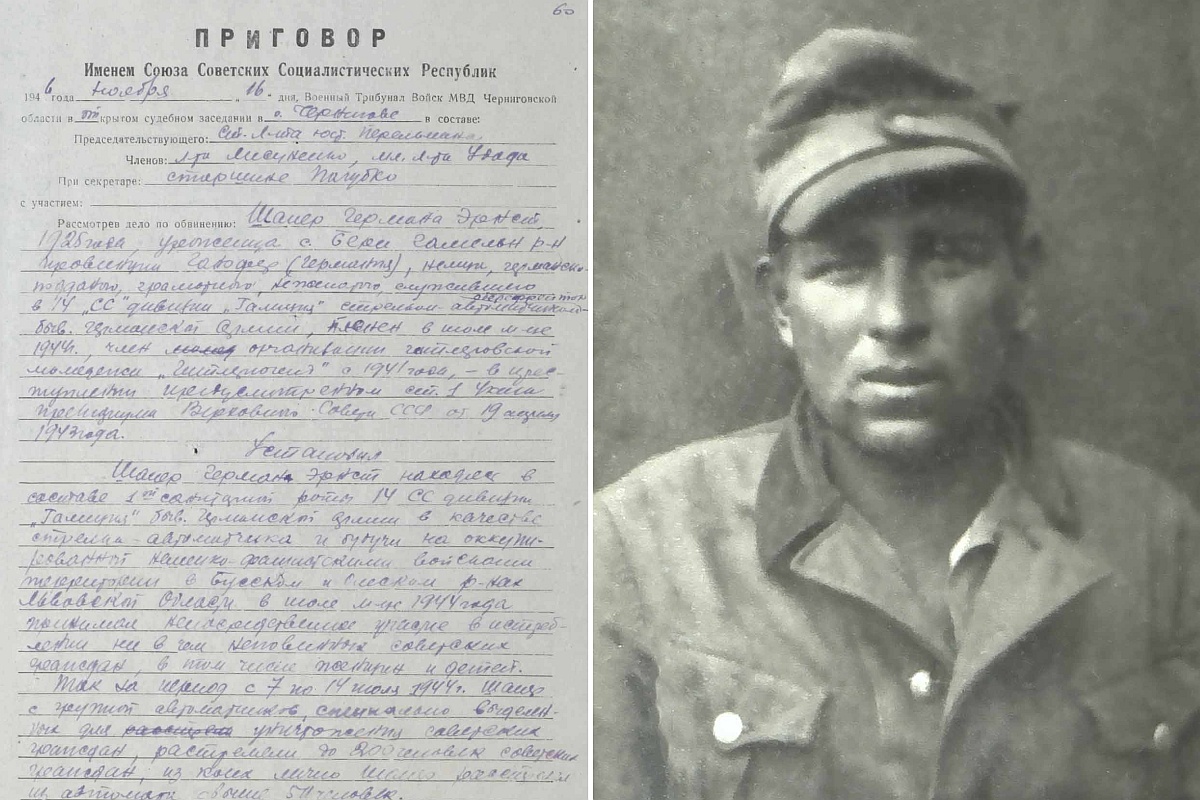 60
ПРИГОВОР
Именем Союза Советских Социалистических Республик
1946 года ноября „16" дня, Военный Трибунал Войск МВД Черниговской
области в открытом судебном заседании в г. Чернигове в составе:
Председательствующего: Ст. л-та юст. Перельмана,
Членов: л-та Мисуненко, мл. л-та
При секретаре: старшине
с участием:
Рассмотрев дело по обвинению: Шапер Германа Эрнст,
года, уроженца с. р-н
провинции (Германия), немца, германско-
подданого, грамотного, женатого, служившего
в "14 СС" дивизии „Галиция" стрелком-
быв. Германской армии, пленен в июле м-це
1944г., член организации гитлеровской
молодежи „Гитлерюгенд" с 1941 года, – в прес-
туплении предусмотренном ст. 1 Указа
президиума Верховного Совета СССР от 19 апреля
1943 года.
Установил
Шапер Герман Эрнст находясь в
составе 1ой роты 14 СС дивизии
„Галиция" быв. Германской армии в качестве
стрелка-автоматчика и будучи на оккупи-
рованной немецко-фашистскими войсками
территории в Бусском и Олеском р-нах
Львовской Области в июле м-це 1944 года
принимал непосредственное участие в истреб-
лении ни в чем неповинных советских
граждан, в том числе женщин и детей.
Так за период с 7 по 14 июля 1944г. Шапер
с группой автоматчиков, специально выделен-
ных для уничтожения советских
граждан, расстреляли до 200 человек советских
граждан, из коих лично Шапер расстрелял
из автомата свыше 50 человек.